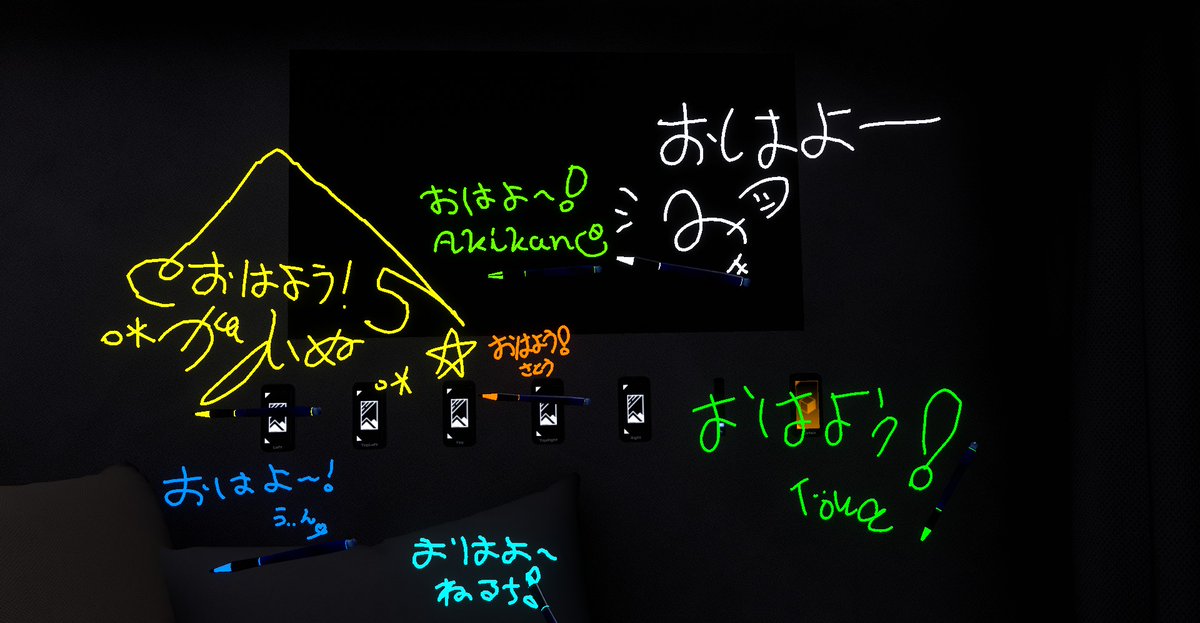 おはよー
み
おはよ〜!
Akikan
おはよう!
おはよう!
さとう
おはよう!
Toka
おはよ〜!
う..ん
おはよ〜
ねるち!